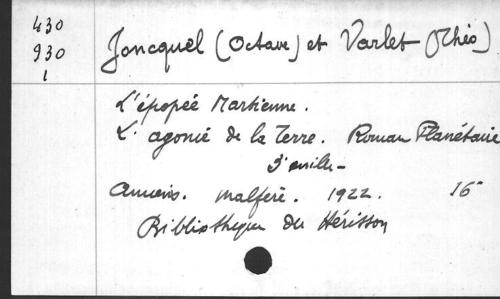 430
930
1
Joncquel (Octave) et Varlet (Théo)
L'épopée Martienne.
L'agonie de la Terre. Roman Planétaire
Amiens. Malfère. 1922. 16°
Bibliothèque du Hérisson